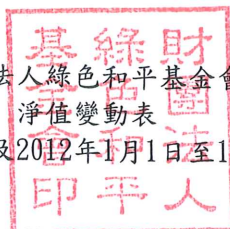 法人綠色和平基金會
淨值變動表
及2012年1月1日至1
財團法人
綠色和平
基金會印